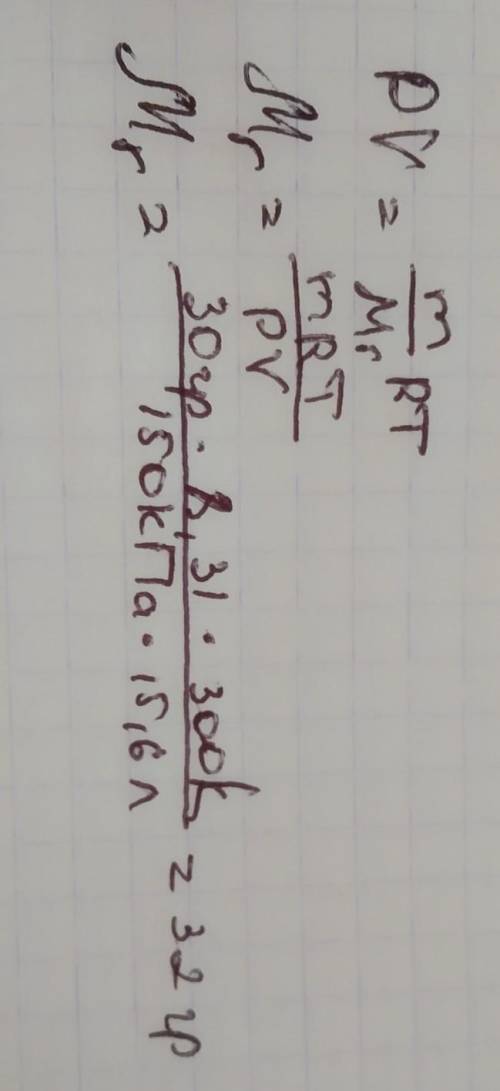 PV = m/Mr RT
Mr = mRT/PV
Mr = 30гр · 8,31 · 300K / 150кПа · 15,6л = 32гр